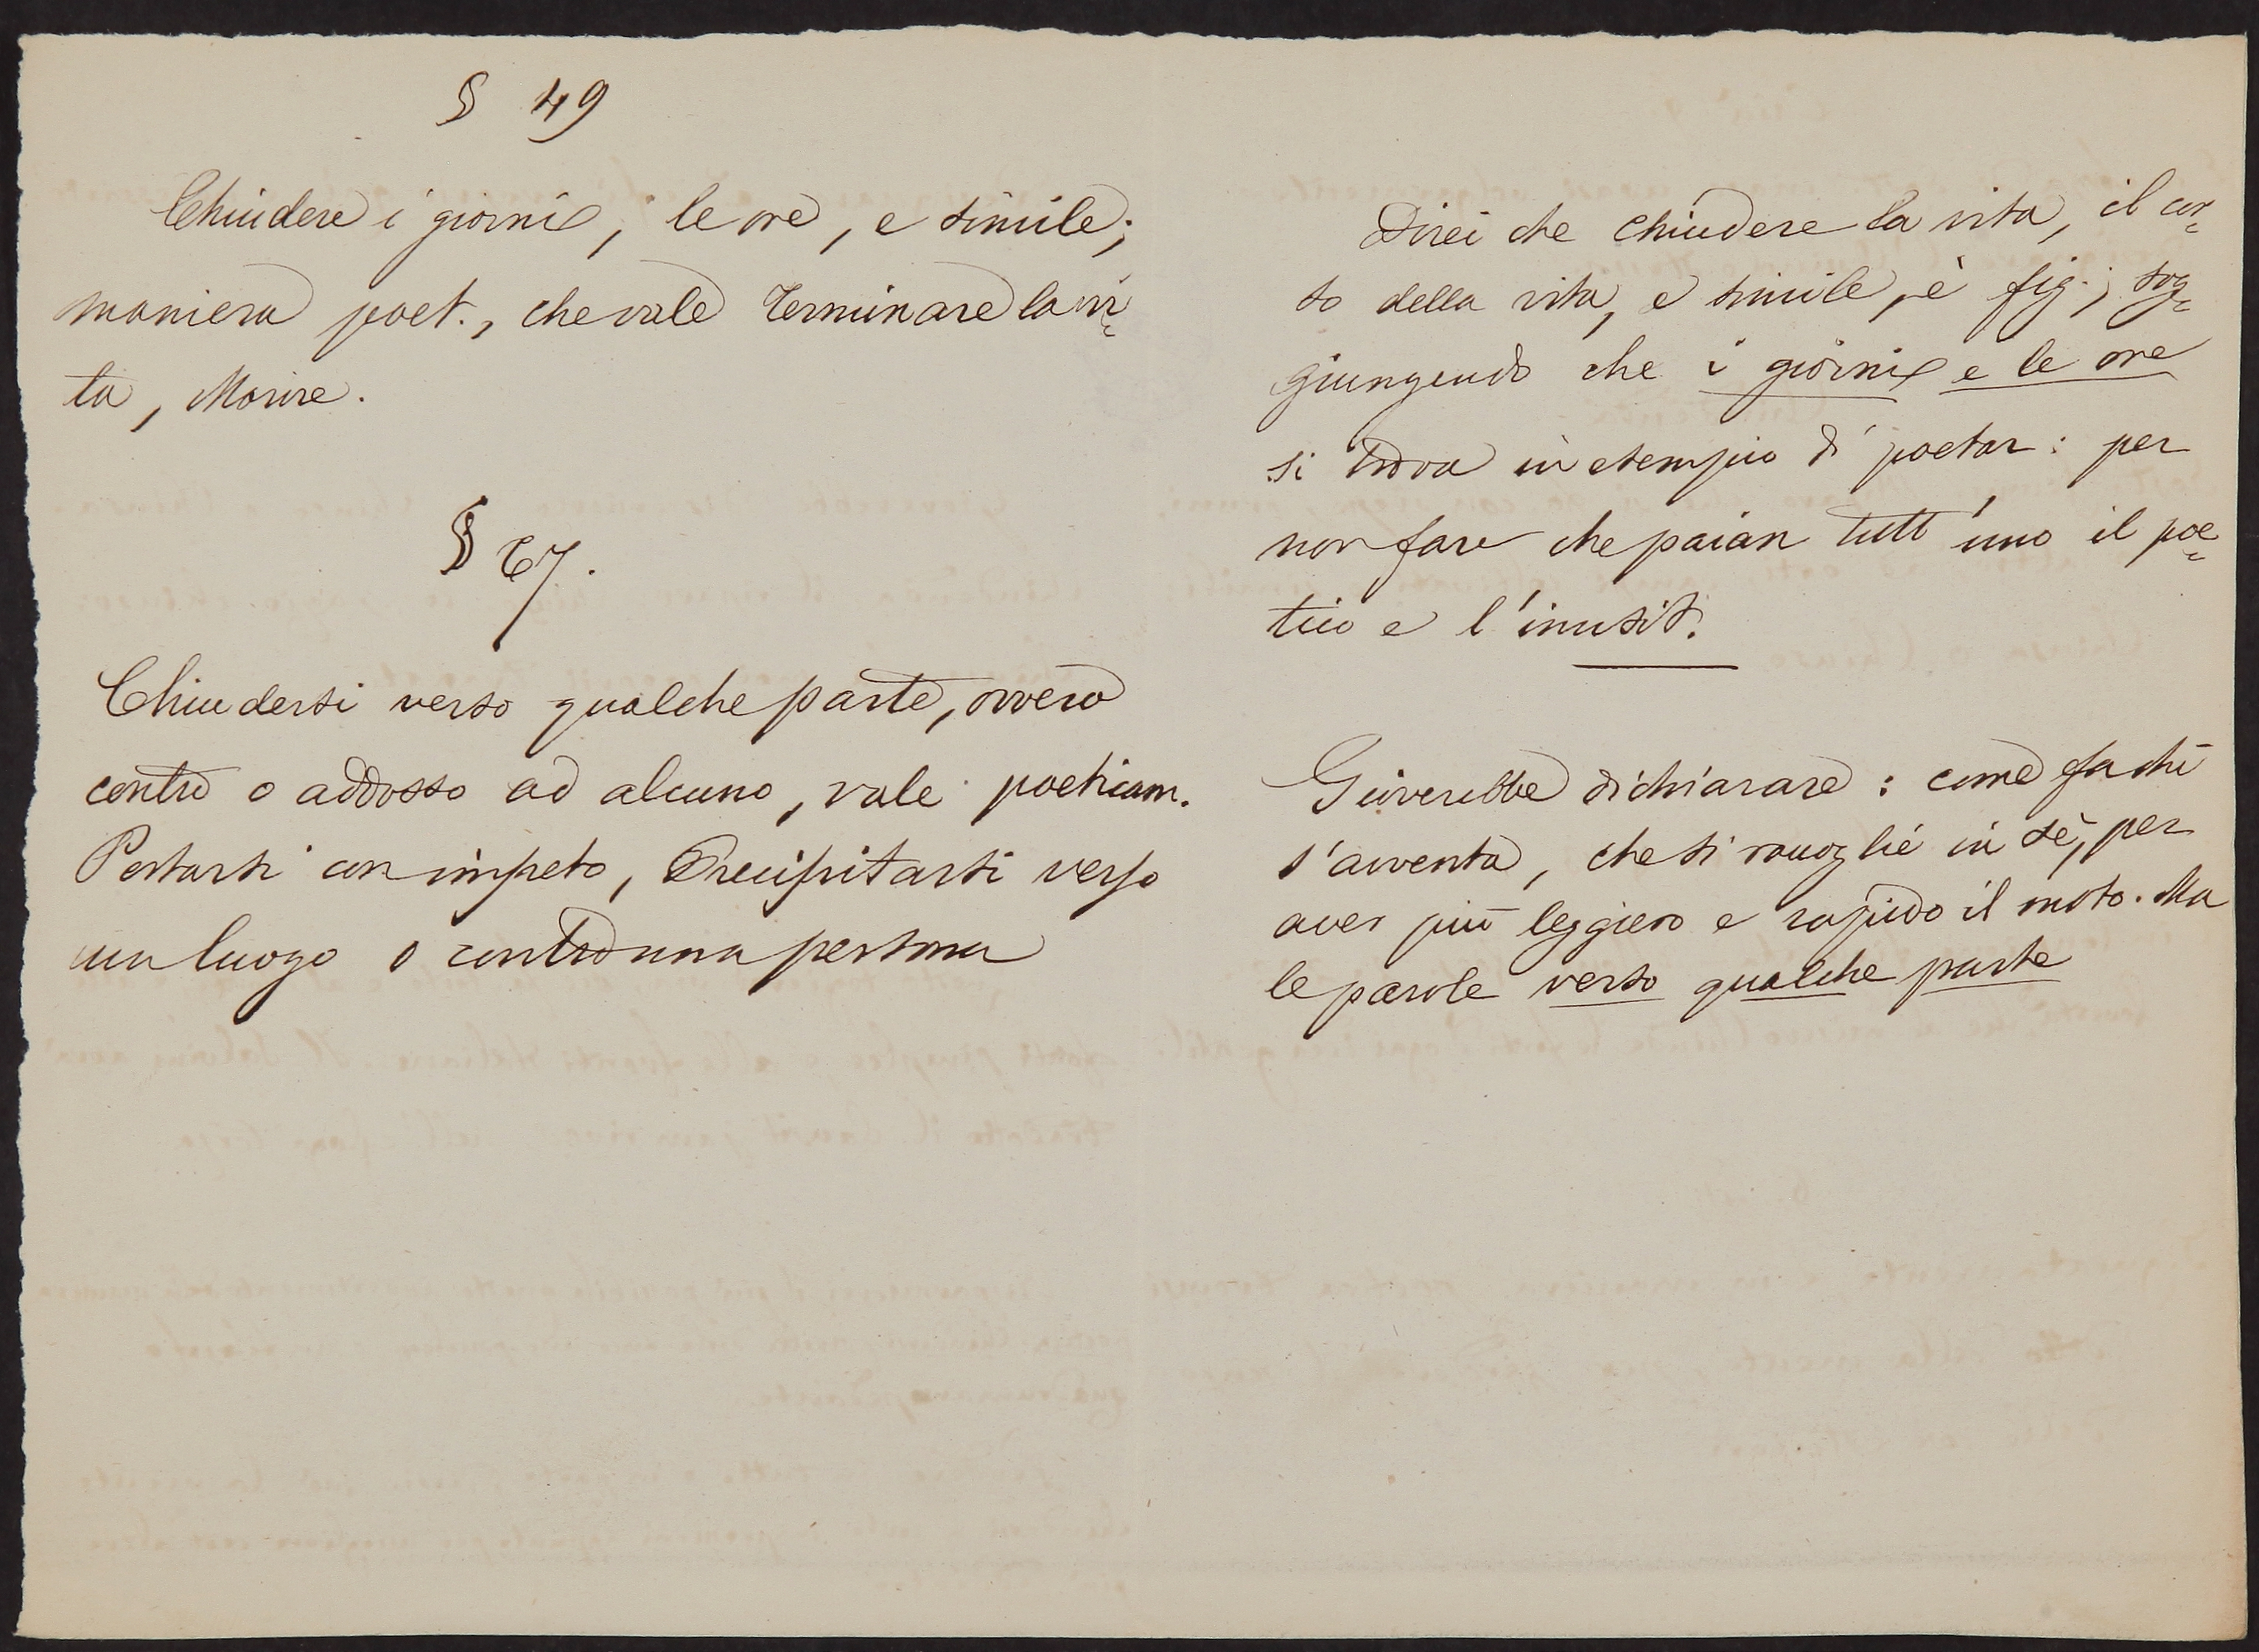 § 49
Chiudere i giorni, le ore, e simile;
maniera poet., che vale Terminare la vi=
ta, Morire.
§ 67.
Chiudersi verso qualche parte, ovvero
contro o addosso ad alcuno, vale poeticam.
Portarsi con impeto, Precipitarsi verso
un luogo o contro una persona
Direi che chiudere la vita, il cor=
so della vita, e simile, è fig.; sog=
giungendo che i giorni e le ore
si trova in esempio di poeta: per
non fare che paian tutt'uno il poe=
tico e l'inusit.
Gioverebbe dichiarare: come fa chi
s'avventa, che si raccoglie in sè, per
aver più leggiero e rapido il moto. Ma
le parole verso qualche parte